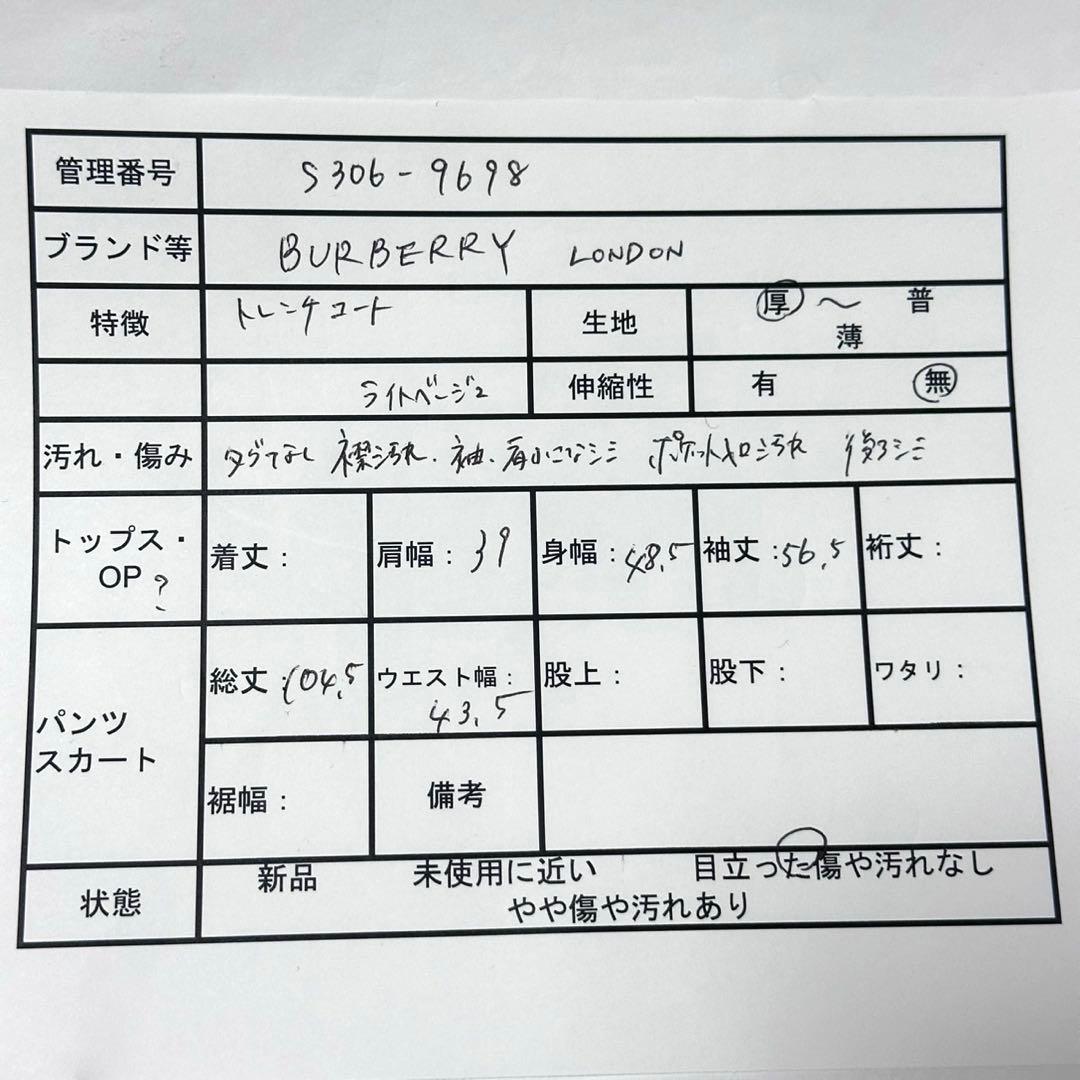 管理番号 S306-9698
ブランド等 BURBERRY LONDON
特徴 トレンチコート 生地 厚 〜 普
薄
ライトベージュ 伸縮性 有 無
汚れ・傷み タグなし 襟汚れ、袖、肩小になシミ ポケット口汚れ 後ろシミ
トップス・
OP ? 着丈: 肩幅: 39 身幅: 48.5 袖丈: 56.5 裄丈:
パンツ
スカート 総丈: 104.5 ウエスト幅:
43.5 股上: 股下: ワタリ:
裾幅: 備考
状態 新品 未使用に近い 目立った傷や汚れなし
やや傷や汚れあり